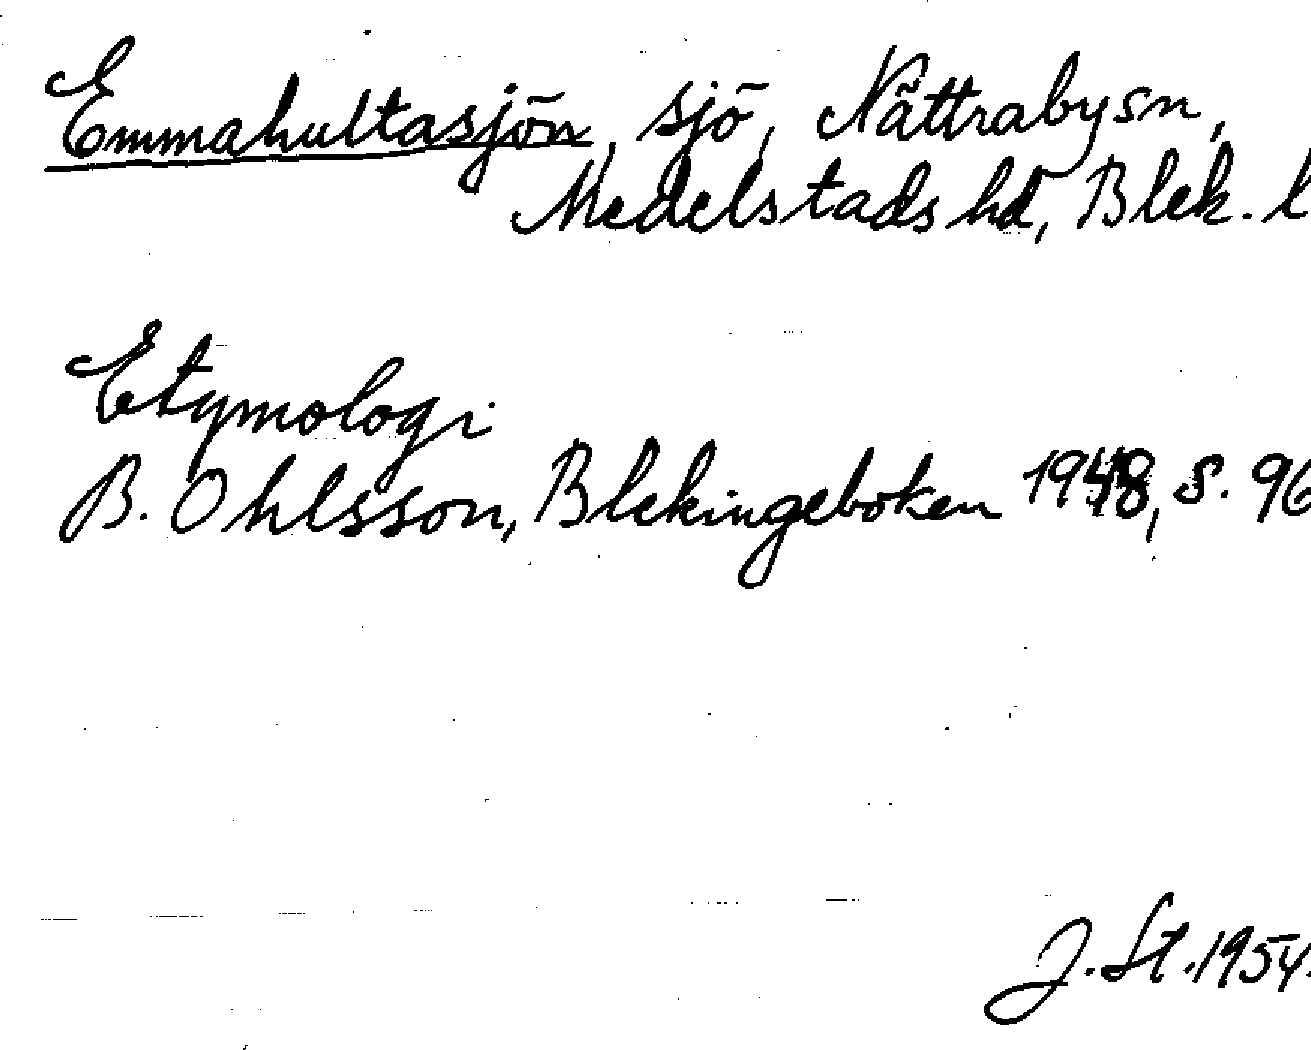 Emmahultasjön, sjö, Nättrabysn,
Medelstads hd, Blek. l
Etymologi
B. Ohlsson, Blekingeboken 1948, s. 96
J. St. 1954.